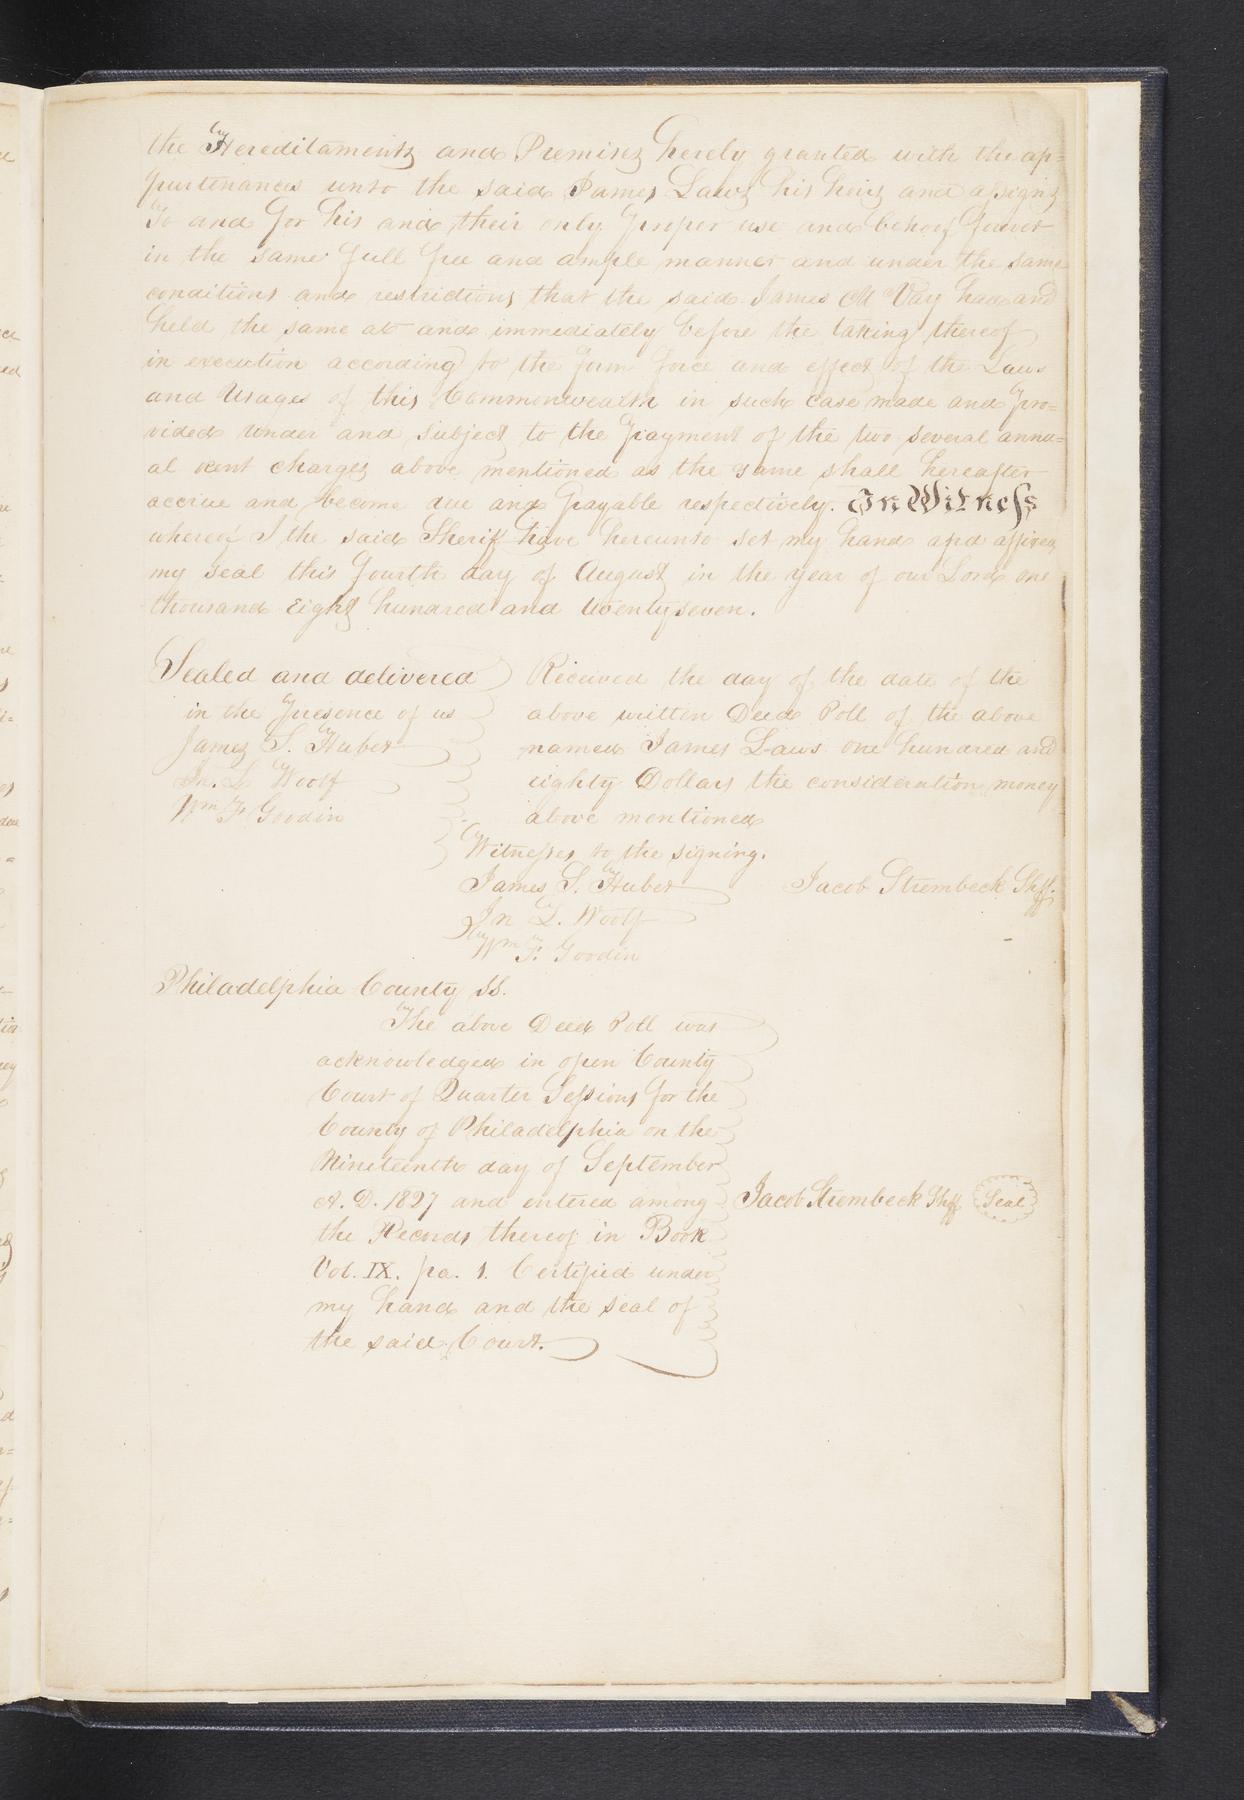 the Hereditaments and Premises hereby granted with the ap=
purtenances unto the said James Laws his heirs and assigns
To and for his and their only proper use and behoof forever
in the same full free and ample manner and under the same
conditions and restrictions that the said James Mc Vay had and
held the same at and immediately before the taking thereof
in execution according to the form force and effect of the Laws
and Usages of this Commonwealth in such case made and pro=
vided under and subject to the payment of the two several annu=
al rent charges above mentioned as the same shall hereafter
accrue and become due and payable respectively. In Witness
whereof I the said Sheriff have hereunto set my hand and affixed
my seal this fourth day of August in the year of our Lord one
thousand Eight hundred and twenty seven.
Sealed and delivered
in the presence of us
James S. Huber
Jn. L. Woolf
Wm F. Goodin
Received the day of the date of the
above written Deed Poll of the above
named James Laws one hundred and
eighty Dollars the consideration money
above mentioned
Witnesses to the signing.
James S. Huber Jacob Strembeck Shff.
Jn L. Woolf
Wm F. Goodin
Philadelphia County ss.
The above Deed Poll was
acknowledged in open County
Court of Quarter Sessions for the
County of Philadelphia on the
Nineteenth day of September
A. D. 1827 and entered among
the Records thereof in Book
Vol. IX. pa. 1. Certified under
my hand and the seal of
the said Court.
Jacob Strembeck Shff Seal